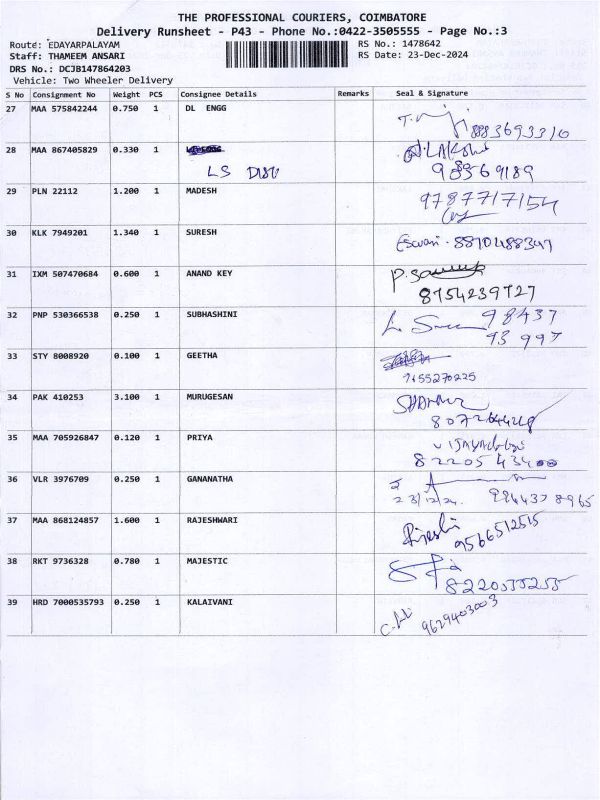 THE PROFESSIONAL COURIERS, COIMBATORE
Delivery Runsheet - P43 - Phone No.:0422-3505555 - Page No.:3
Route: EDAYARPALAYAM RS No.: 1478642
Staff: THAMEEM ANSARI RS Date: 23-Dec-2024
DRS No.: DCJB147864203
Vehicle: Two Wheeler Delivery
S No Consignment No Weight PCS Consignee Details Remarks Seal & Signature
27 MAA 575842244 0.750 1 DL ENGG
8883693310
28 MAA 867405829 0.330 1
LS
29 PLN 22112 1.200 1 MADESH 9787717154
30 KLK 7949201 1.340 1 SURESH
Eswari - 8870488347
31 IXM 507470684 0.600 1 ANAND KEY
8754239727
32 PNP 530366538 0.250 1 SUBHASHINI 98437
93 997
33 STY 8008920 0.100 1 GEETHA
34 PAK 410253 3.100 1 MURUGESAN
35 MAA 705926847 0.120 1 PRIYA
82205 43400
36 VLR 3976709 0.250 1 GANANATHA
23/12/24
37 MAA 868124857 1.600 1 RAJESHWARI
9566512515
38 RKT 9736328 0.780 1 MAJESTIC
8220555255
39 HRD 7000535793 0.250 1 KALAIVANI
9629403003